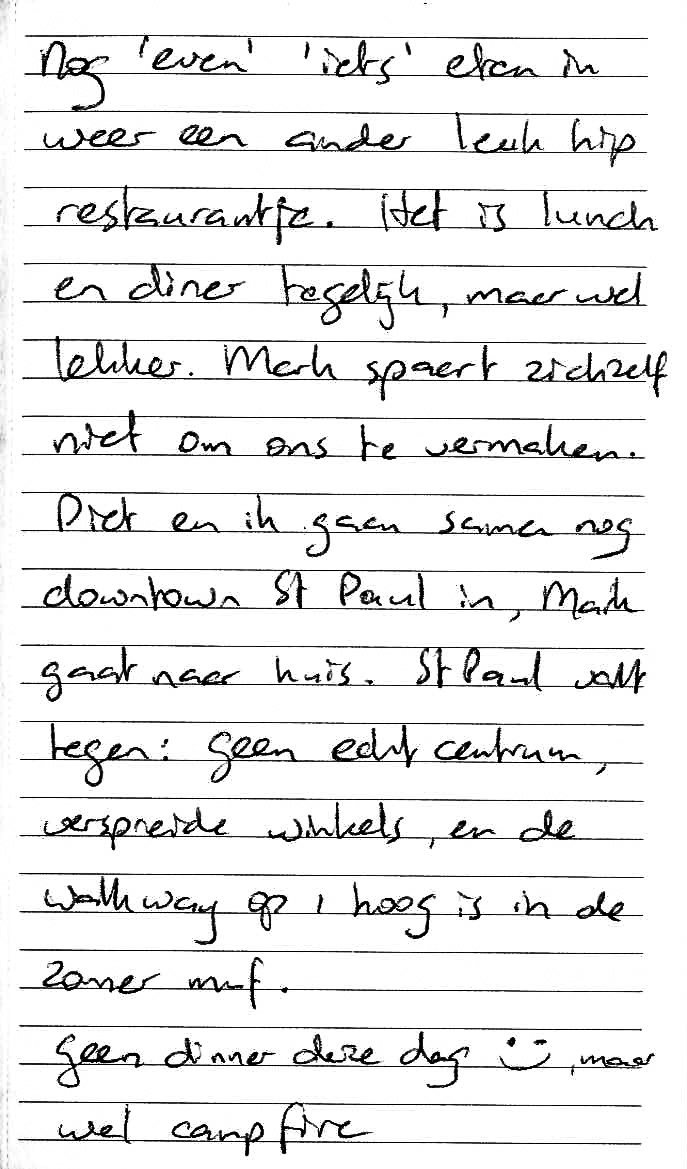 Nog 'even' 'iets' eten in
weer een ander leuk hip
restaurantje. Het is lunch
en diner tegelijk, maar wel
lekker. Mark spaart zichzelf
niet om ons te vermaken.
Piet en ik gaan samen nog
downtown St Paul in, Mark
gaat naar huis. St Paul valt
tegen: geen echt centrum,
verspreide winkels, en de
walkway op 1 hoog is in de
zomer muf.
Geen dinner deze dag :-), maar
wel campfire